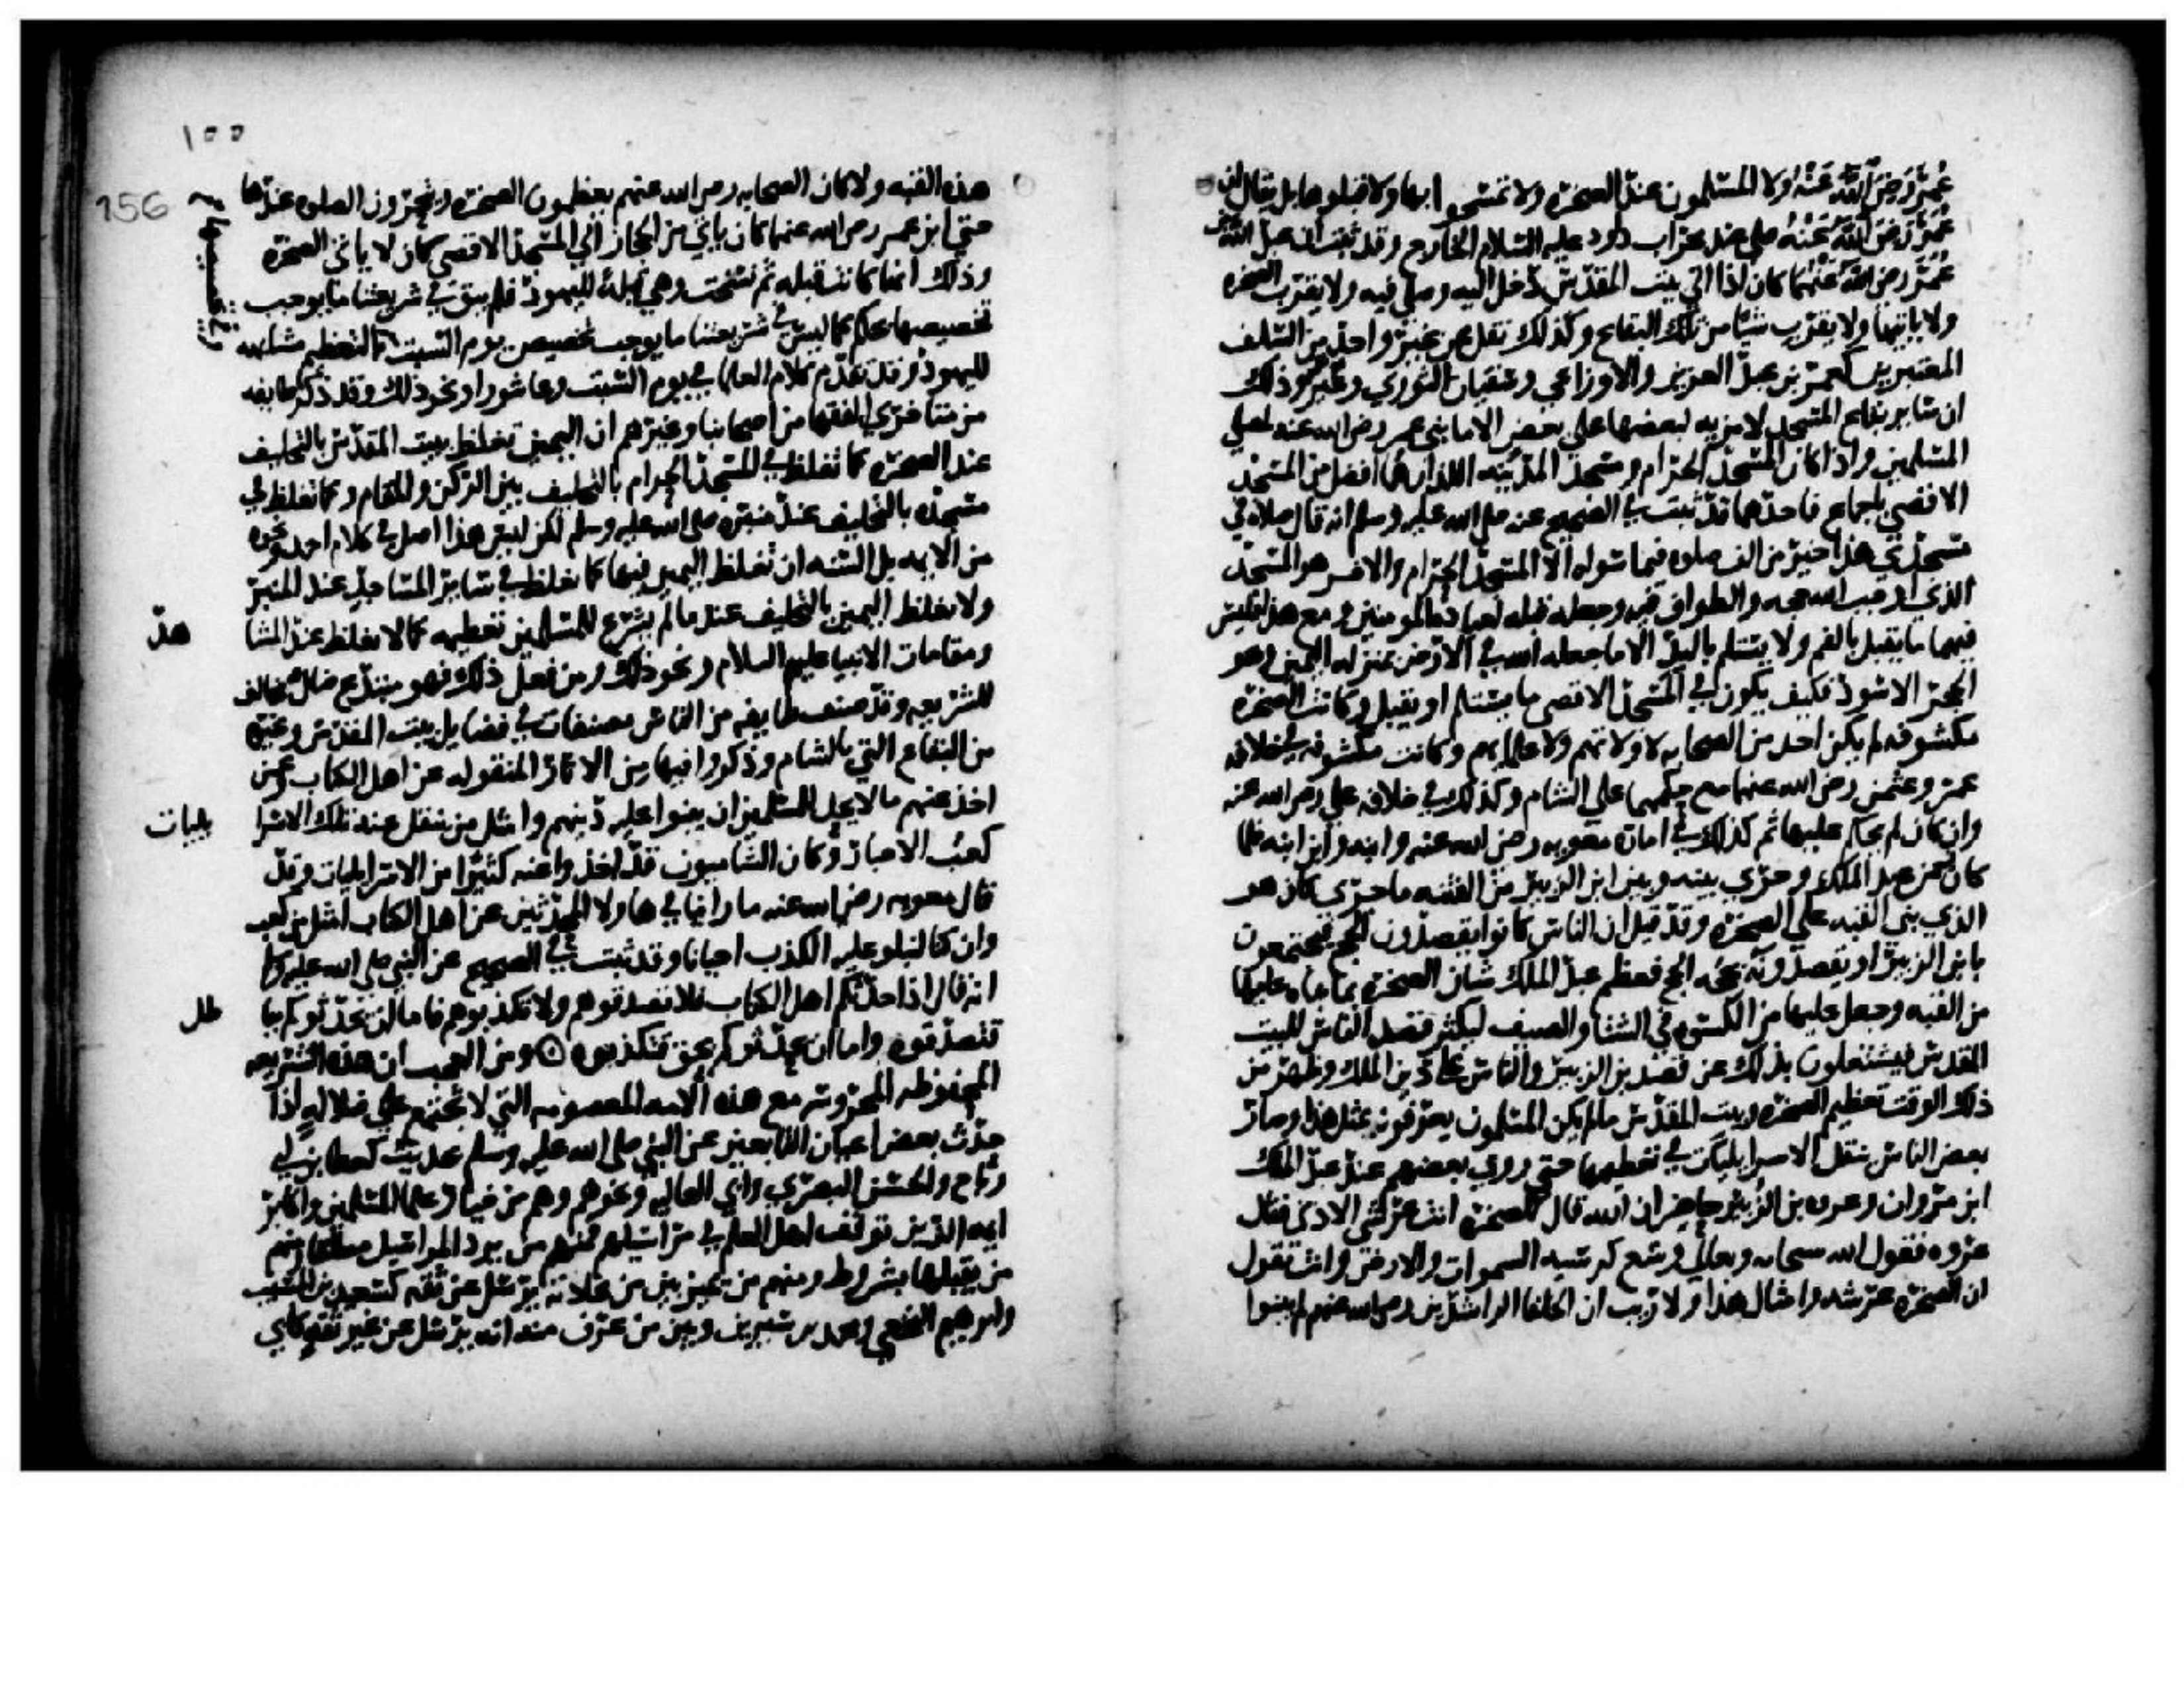 عُمَرُ رَضِيَ اللَّهُ عَنْهُ ولا المسلمون عند الصخرة ولا تمسحوا بها ولا قبلوها بل يقال ان
عُمَرَ رَضِيَ اللَّهُ عَنْهُ صلى عند محراب داود عليه السلام الخارج وقد ثبت ان عبد الله بن
عُمَرَ رضي الله عَنْهُمَا كان اذا اتى بيت المقدس دخل اليه وصلى فيه ولا يقرب الصخرة
ولا ياتيها ولا يقرب شيا من تلك البقاع وكذلك نقل عن غير واحد من السلف
المعتبرين كعمر بن عبد العزيز والاوزاعي وسفيان الثوري وغيرهم وذلك
ان ساير بقاع المسجد لا مزيه لبعضها على بعض الا ما بنى عمر رضي الله عنه لمصلى
المسلمين واذا كان المسجد الحرام ومسجد المدينه اللذان هما افضل من المسجد
الاقصى بالاجماع فاحدهما قد ثبت في الصحيح عنه صلى الله عليه وسلم انه قال صلاه في
مسجدي هذا خير من الف صلوه فيما سواه الا المسجد الحرام والاخر هو المسجد
الذي اوجب الله حجه والطواف فيه وجعله قبله لعباده المومنين ومع هذا فليس
فيهما ما يقبل بالفم ولا يستلم باليد الا ما جعله الله في الارض بمنزله اليمين وهو
الحجر الاسود فكيف يكون في المسجد الاقصى ما يستلم او يقبل وكانت الصخرة
مكشوفه لم يكن احد من الصحابه لا ولاتهم ولا علماوهم وكانت مكشوفه في خلافه
عمر وعثمن رضي الله عنهما مع حكمهما على الشام وكذلك في خلافه علي رضي الله عنه
وان كان لم يحكم عليها ثم كذلك في امارة معويه رضي الله عنه وابنه وابن ابنه فلما
كان زمن عبد الملك وجرى بينه وبين ابن الزبير من الفتنه ما جرى كان هو
الذي بنى القبه على الصخرة وقد قيل ان الناس كانوا يقصدون الحج فيجتمعون
بابن الزبير او يقصدونه بحجه الحج فعظم عبد الملك شان الصخرة بما بناه عليها
من القبه وجعل عليها من الكسوه في الشتا والصيف ليكثر قصد الناس للبيت
المقدس فيشتغلون بذلك عن قصد بن الزبير والناس على دين الملك وظهر من
ذلك الوقت تعظيم الصخرة وبيت المقدس ما لم يكن المسلمون يعرفونه بمثل هذا وصار
بعض الناس ينقل الاسرايليات في تعظيمها حتى روى بعضهم عند عبد الملك
ابن مروان وعروه بن الزبير حاضر ان الله قال للصخرة انت عرشي الادنى فقال
عروه فقول الله سبحانه وتعالى وسع كرسيه السموات والارض وانت تقول
ان الصخرة عرشه وامثال هذا ولا ريب ان الخلفا الراشدين رضي الله عنهم لم يبنوا
١٥٥
156
هذه القبه ولا كان الصحابه رضي الله عنهم يعظمون الصخرة ويتحرون الصلوه عندها
حتى ابن عمر رضي الله عنهما كان ياتي من الحجاز الى المسجد الاقصى كان لا ياتي الصخرة
وذلك انها كانت قبله ثم نسخت وهي قبلة لليهود فلم يبق في شريعتنا ما يوجب
تخصيصها بحكم كما ليس في شريعتنا ما يوجب تخصيص يوم السبت بالتعظيم مشابهه
لليهود وقد تقدم كلام العلما في يوم السبت وعاشورا ونحو ذلك وقد ذكر طايفه
من متاخري الفقها من اصحابنا وغيرهم ان اليمين تغلظ ببيت المقدس بالتحليف
عند الصخره كما تغلظ في المسجد الحرام بالتحليف بين الركن والمقام وكما تغلظ في
مسجده بالتحليف عند منبره صلى الله عليه وسلم لكن ليس لهذا اصل في كلام احمد ونحوه
من الايمه بل السنه ان تغلظ اليمين فيها كما تغلظ في ساير المساجد عند المنبر
ولا تغلظ اليمين بالتحليف عند ما لم يشرع للمسلمين تعظيمه كما لا تغلظ عند المشا هد
ومقامات الانبيا عليهم السلام ونحو ذلك ومن فعل ذلك فهو مبتدع ضال مخالف
للشريعه وقد صنف طايفه من الناس مصنفات في فضايل بيت المقدس وغيره
من البقاع التي بالشام وذكروا فيها من الاثار المنقوله عن اهل الكاب وعمن
اخذ عنهم ما لا يحل للمسلمين ان يبنوا عليه دينهم وامثل من ينقل عنه تلك الاسرا يليات
كعب الاحبار وكان الشاميون قد اخذوا عنه كثيرا من الاسرايليات وقد
قال معويه رضي الله عنه ما راينا في هاولا المحدثين عن اهل الكاب امثل من كعب
وان كنا لنبلو عليه الكذب احيانا وقد ثبت في الصحيح عن النبي صلى الله عليه وسلم
انه قال اذا حدثكم اهل الكتاب فلا تصدقوهم ولا تكذبوهم فاما ان يحدثوكم ببا طل
فتصدقوه واما ان يحدثوكم بحق فتكذبوه ⊙ ومن العجب ان هذه الشريعه
المحفوظه المحروسه مع هذه الامه المعصومه التي لا تجتمع على ضلاله اذا
حدث بعض اعيان التابعين عن النبي صلى الله عليه وسلم بحديث كعطا بن ابي
رباح والحسن البصري وابي العاليه ونحوهم وهم من خيار علما المسلمين واكابر
ايمه الدين توقف اهل العلم في مراسيلهم فمنهم من يرد المراسيل مطلقا ومنهم
من يقبلها بشروط ومنهم من يميز بين من عادته يرسل عن ثقه كسعيد بن المسيب
وابرهيم النخعي ومحمد بن سيرين وبين من عرف منه انه يرسل عن غير ثقه كابي